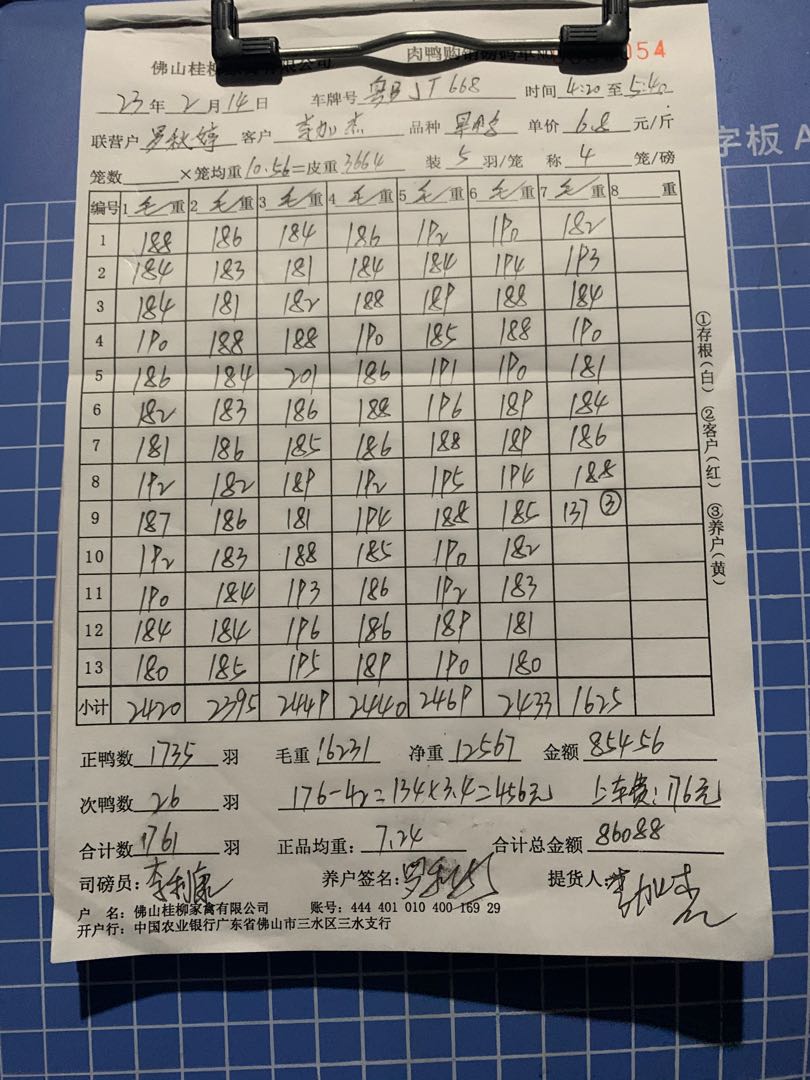 佛山桂柳家禽有限公司 肉鸭购销磅码单 No 054
23年2月14日 车牌号 粤B JT668 时间 4:20至5:40
联营户 罗秋婷 客户 加杰 品种 单价 6.8 元/斤
笼数 ×笼均重10.56=皮重3664 装 5 羽/笼 称 4 笼/磅
编号 1 毛重 2 毛重 3 毛重 4 毛重 5 毛重 6 毛重 7 毛重 8 重
1 188 186 184 186 192 190 182
2 184 183 181 184 184 194 193
3 184 181 182 188 189 188 184
4 190 188 188 190 185 188 190
5 186 184 201 186 191 190 181
6 182 183 186 188 196 189 184
7 181 186 185 186 188 189 186
8 192 182 189 192 195 194 188
9 187 186 181 194 188 185 137 ③
10 192 183 188 185 190 182
11 190 184 193 186 192 183
12 184 184 196 186 189 181
13 180 185 195 189 190 180
小计 2420 2395 2449 2440 2469 2433 1625
①存根(白) ②客户(红) ③养户(黄)
正鸭数 1735 羽 毛重 16231 净重 12567 金额 85456
次鸭数 26 羽 176-42=134×3.4=456元 上车费:176元
合计数 1761 羽 正品均重: 7.24 合计总金额 86088
司磅员: 李利康 养户签名: 提货人:
户 名: 佛山桂柳家禽有限公司 账号: 444 401 010 400 169 29
开户行: 中国农业银行广东省佛山市三水区三水支行
字板 A